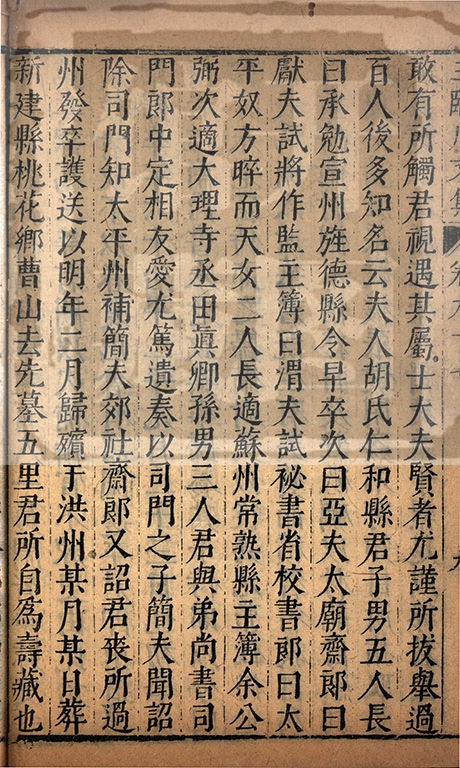 敢有所觸君視遇其屬士大夫賢者尤謹所拔舉過
百人後多知名云夫人胡氏仁和縣君子男五人長
曰承勉宣州旌德縣令早卒次曰亞夫太廟齋郎曰
獻夫試將作監主簿曰渭夫試祕書省校書郎曰太
平奴方晬而天女二人長適蘇州常熟縣主簿余公
弼次適大理寺丞田眞卿孫男三人君與弟尚書司
門郎中定相友愛尤篤遺奏以司門之子簡夫聞詔
除司門知太平州補簡夫郊社齋郎又詔君喪所過
州發卒護送以明年二月歸殯于洪州某月某日葬
新建縣桃花鄉曹山去先墓五里君所自爲壽藏也